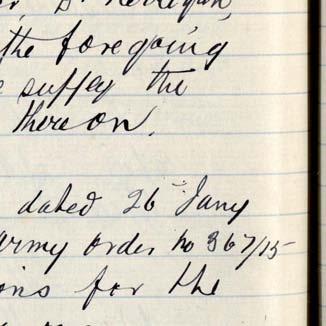 the foregoing
suffey the
thereon.
dated 26 Jany
army order no 367/15
ons for the